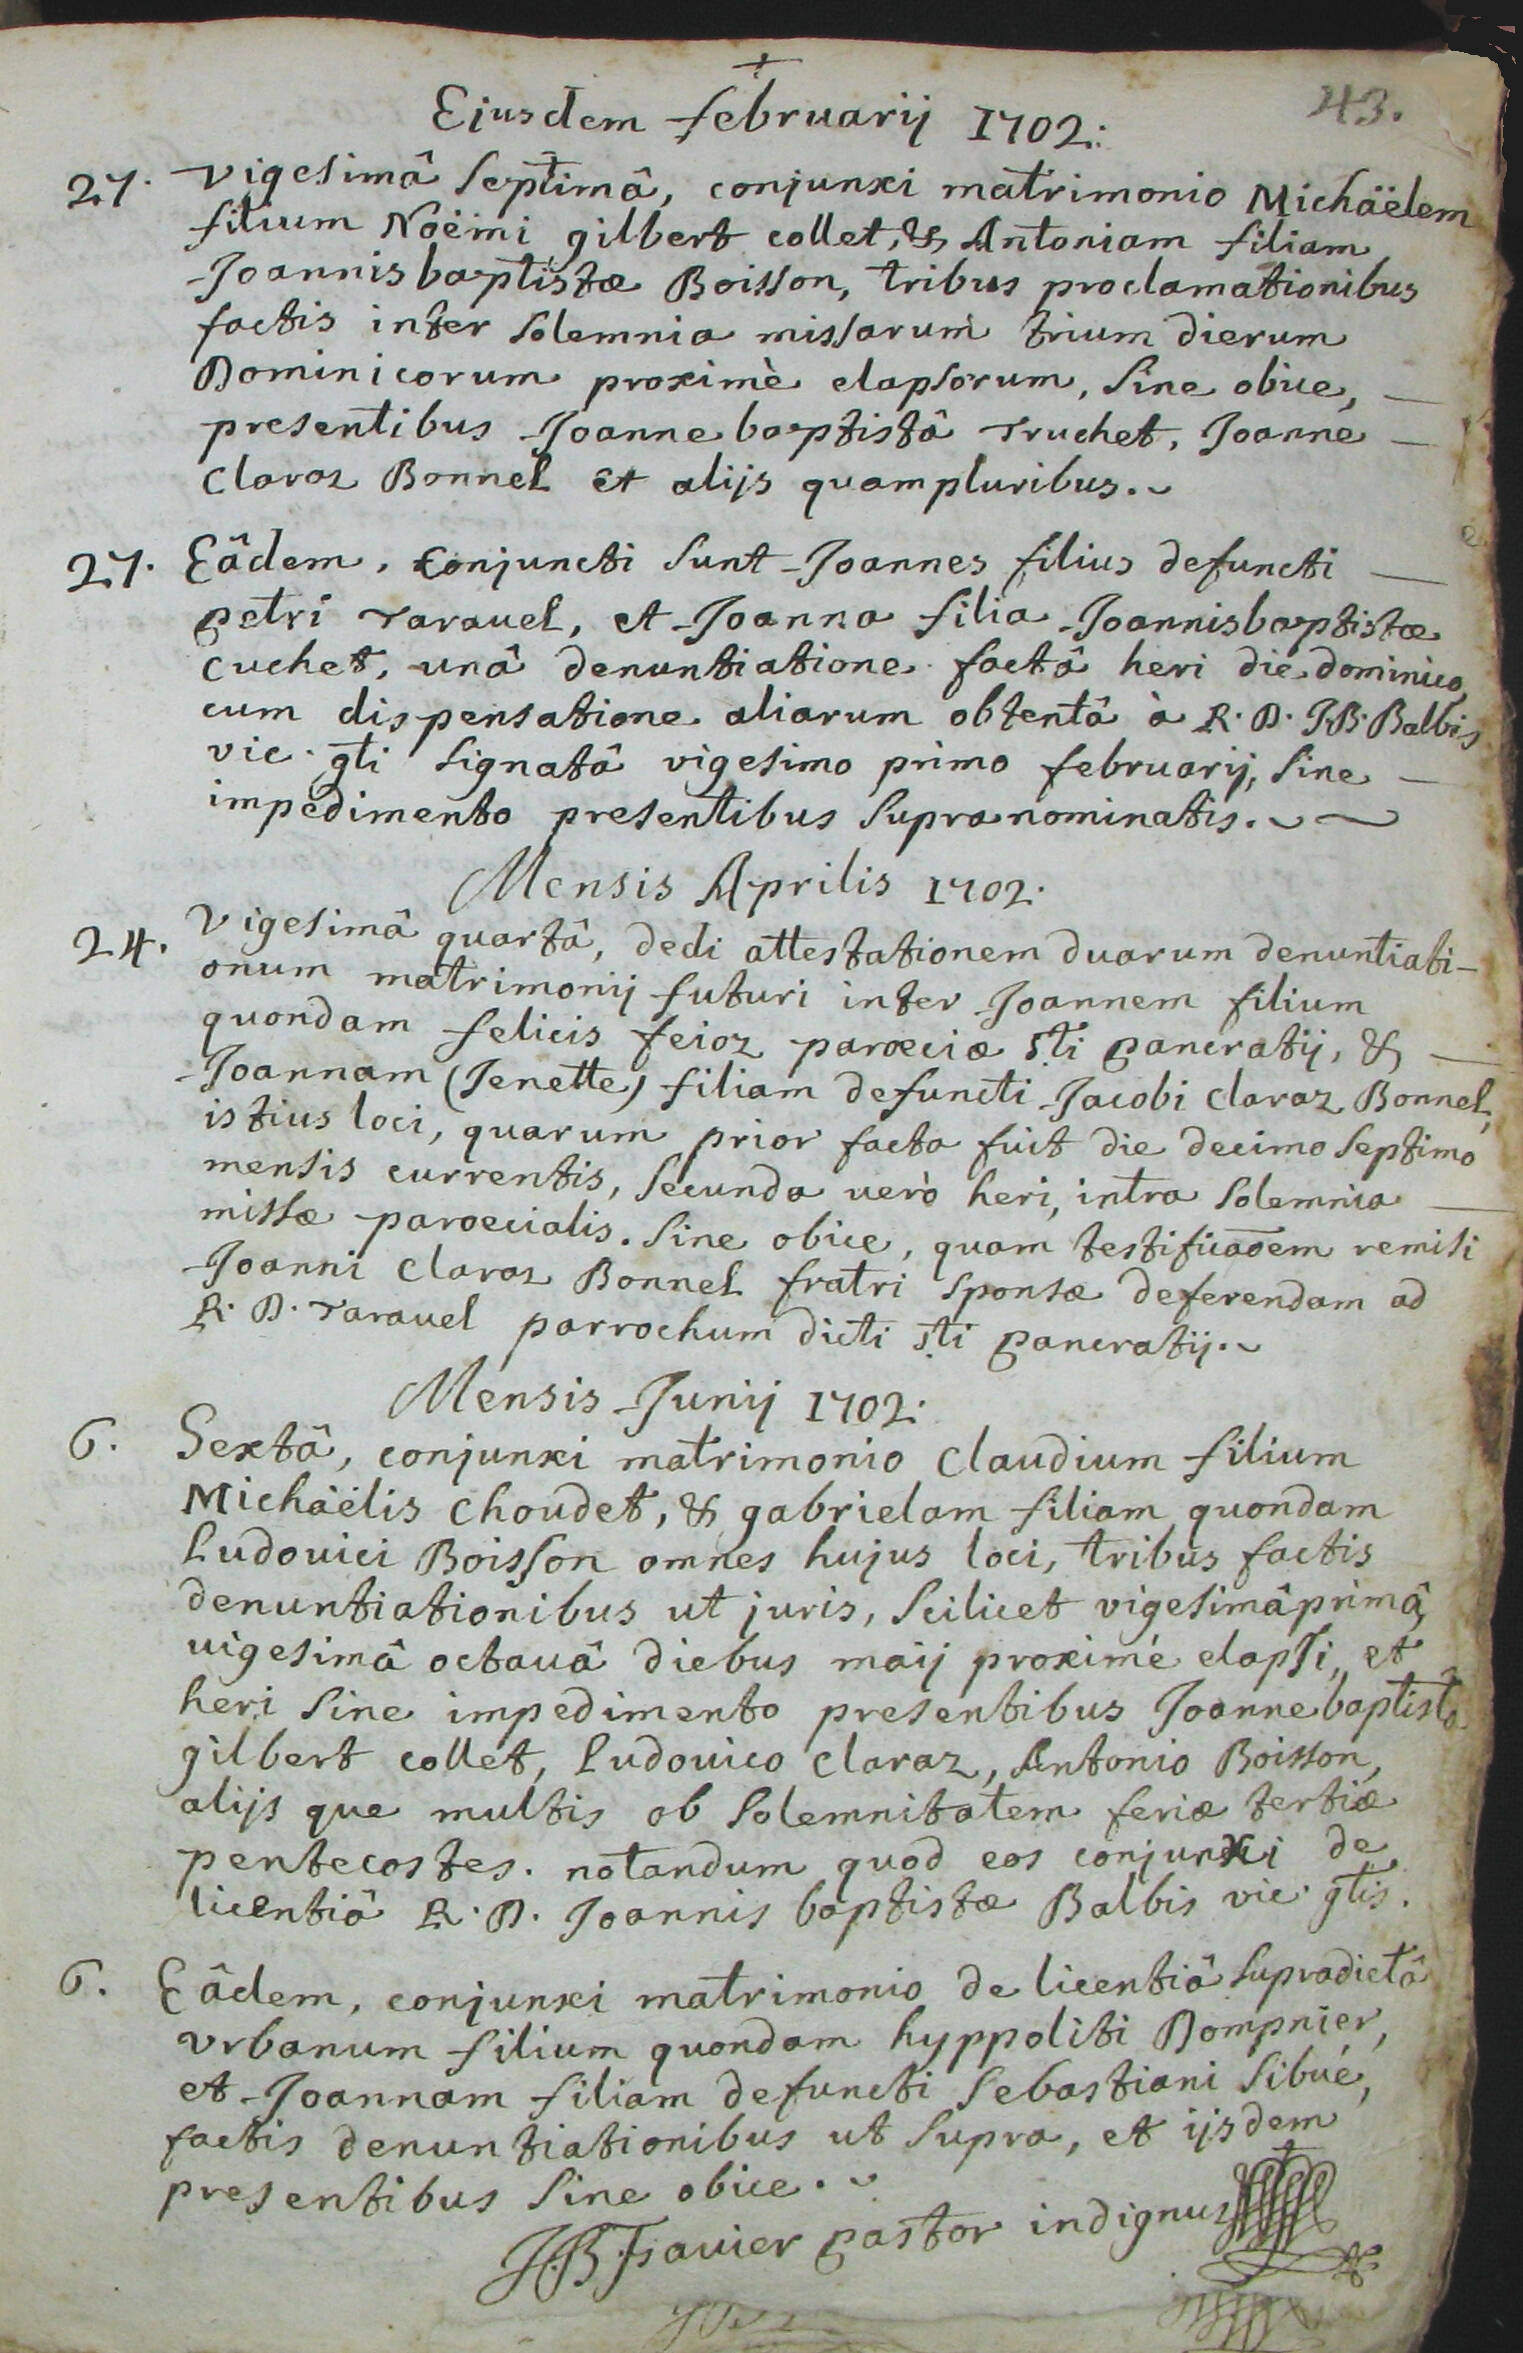 +
43.
Ejusdem februarij 1702:
27. vigesimâ septimâ, conjunxi matrimonio Michäelem
filium Noëmi gilbert collet, & Antoniam filiam
Joannisbaptistæ Boisson, tribus proclamationibus
factis inter solemnia missarum trium dierum
Dominicorum proximè elapsorum, sine obice, —
presentibus Joannebaptistâ Truchet, Joanne —
claraz Bonnel et alijs quampluribus.
27. Eâdem, conjuncti sunt Joannes filius defuncti —
petri Taravel, et Joanna filia Joannisbaptistæ
cuchet, unâ denuntiatione factâ heri die dominico,
cum dispensatione aliarum obtentâ à R. D. J.B. Balbis
vic. gti signatâ vigesimo primo februarij, sine —
impedimento presentibus supranominatis.
Mensis Aprilis 1702.
24. Vigesimâ quartâ, dedi attestationem duarum denuntiati-
onum matrimonij futuri inter Joannem filium
quondam felicis feioz parœciæ sti pancratij, & —
Joannam (Jenette) filiam defuncti Jacobi claraz Bonnel,
istius loci, quarum prior facta fuit die decimo septimo
mensis currentis, secunda verò heri, intra solemnia —
missæ parœcialis. sine obice, quam testificaõem remisi
Joanni claraz Bonnel fratri sponsæ deferendam ad
R. D. Taravel parrochum dicti sti pancratij.
Mensis Junij 1702:
6. Sextâ, conjunxi matrimonio claudium filium
Michäëlis choudet, & gabrielam filiam quondam
Ludovici Boisson omnes hujus loci, tribus factis
denuntiationibus ut juris, scilicet vigesimâprimâ,
uigesimâ octauâ diebus maij proximé elapsi, et
heri sine impedimento presentibus Joannebaptistâ
gilbert collet, Ludouico claraz, Antonio Boisson,
alijs que multis ob solemnitatem feriæ tertiæ
pentecostes. notandum quod eos conjunxi de
licentiâ R. D. Joannis baptistæ Balbis vic. gtis.
6. Eâdem, conjunxi matrimonio de licentiâ supradictâ
vrbanum filium quondam hyppoliti Dompnier,
et Joannam filiam defuncti sebastiani sibué,
factis denuntiationibus ut supra, et ijsdem
presentibus sine obice.
pastor indignus